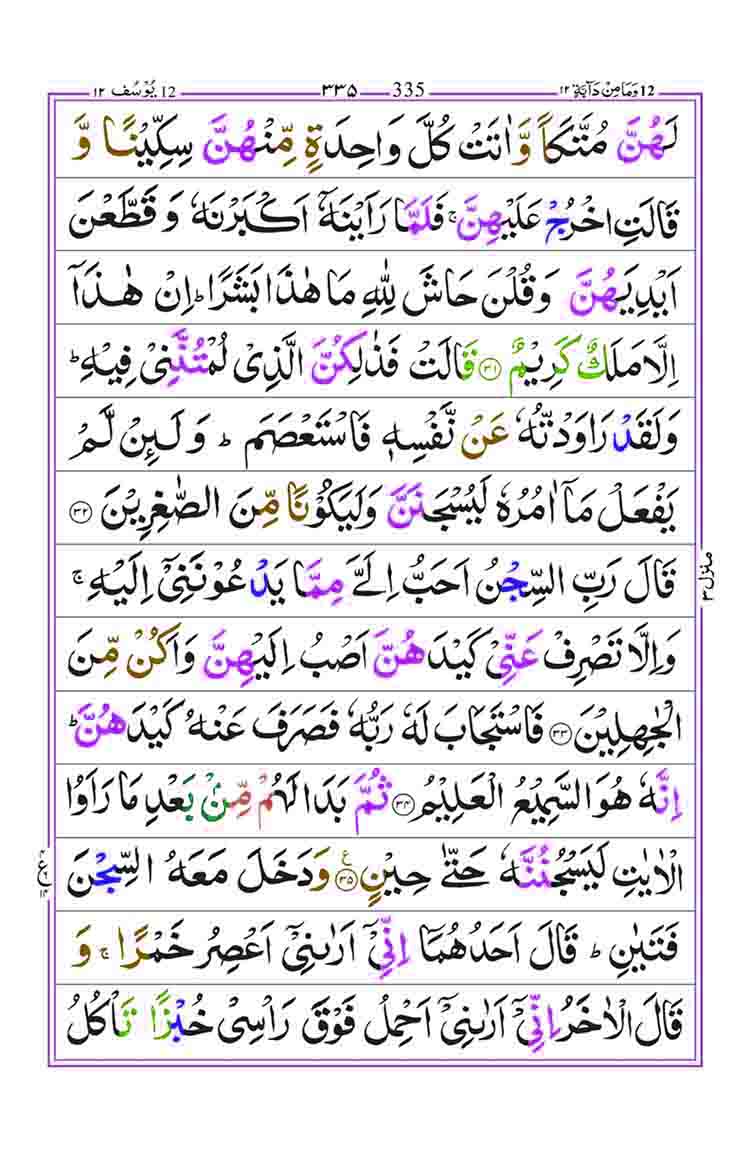 12 وَمَا مِنْ دَآبَّةٍ ۱۲ — 335 — ۳۳۵ — 12 يُوْسُف ۱۲
لَهُنَّ مُتَّكَاً وَّاٰتَتْ كُلَّ وَاحِدَةٍ مِّنْهُنَّ سِكِّيْنًا وَّ
قَالَتِ اخْرُجْ عَلَيْهِنَّ ۚ فَلَمَّا رَاَيْنَهٗٓ اَكْبَرْنَهٗ وَ قَطَّعْنَ
اَيْدِيَهُنَّ وَقُلْنَ حَاشَ لِلّٰهِ مَا هٰذَا بَشَرًا ؕ اِنْ هٰذَاۤ
اِلَّا مَلَكٌ كَرِيْمٌ ﴿۳۱﴾ قَالَتْ فَذٰلِكُنَّ الَّذِىْ لُمْتُنَّنِىْ فِيْهِ ؕ
وَلَقَدْ رَاوَدْتُّهٗ عَنْ نَّفْسِهٖ فَاسْتَعْصَمَ ؕ وَلَئِنْ لَّمْ
يَفْعَلْ مَاۤ اٰمُرُهٗ لَيُسْجَنَنَّ وَلَيَكُوْنًا مِّنَ الصّٰغِرِيْنَ ﴿۳۲﴾
قَالَ رَبِّ السِّجْنُ اَحَبُّ اِلَىَّ مِمَّا يَدْعُوْنَنِىْۤ اِلَيْهِ ۚ
منزل ۳
وَاِلَّا تَصْرِفْ عَنِّىْ كَيْدَهُنَّ اَصْبُ اِلَيْهِنَّ وَاَكُنْ مِّنَ
الْجٰهِلِيْنَ ﴿۳۳﴾ فَاسْتَجَابَ لَهٗ رَبُّهٗ فَصَرَفَ عَنْهُ كَيْدَهُنَّ ؕ
اِنَّهٗ هُوَ السَّمِيْعُ الْعَلِيْمُ ﴿۳۴﴾ ثُمَّ بَدَا لَهُمْ مِّنْۢ بَعْدِ مَا رَاَوُا
الْاٰيٰتِ لَيَسْجُنُنَّهٗ حَتّٰى حِيْنٍ ﴿۳۵﴾ وَدَخَلَ مَعَهُ السِّجْنَ
ع
فَتَيٰنِ ؕ قَالَ اَحَدُهُمَاۤ اِنِّىْۤ اَرٰىنِىْۤ اَعْصِرُ خَمْرًا ۚ وَ
قَالَ الْاٰخَرُ اِنِّىْۤ اَرٰىنِىْۤ اَحْمِلُ فَوْقَ رَاْسِىْ خُبْزًا تَاْكُلُ